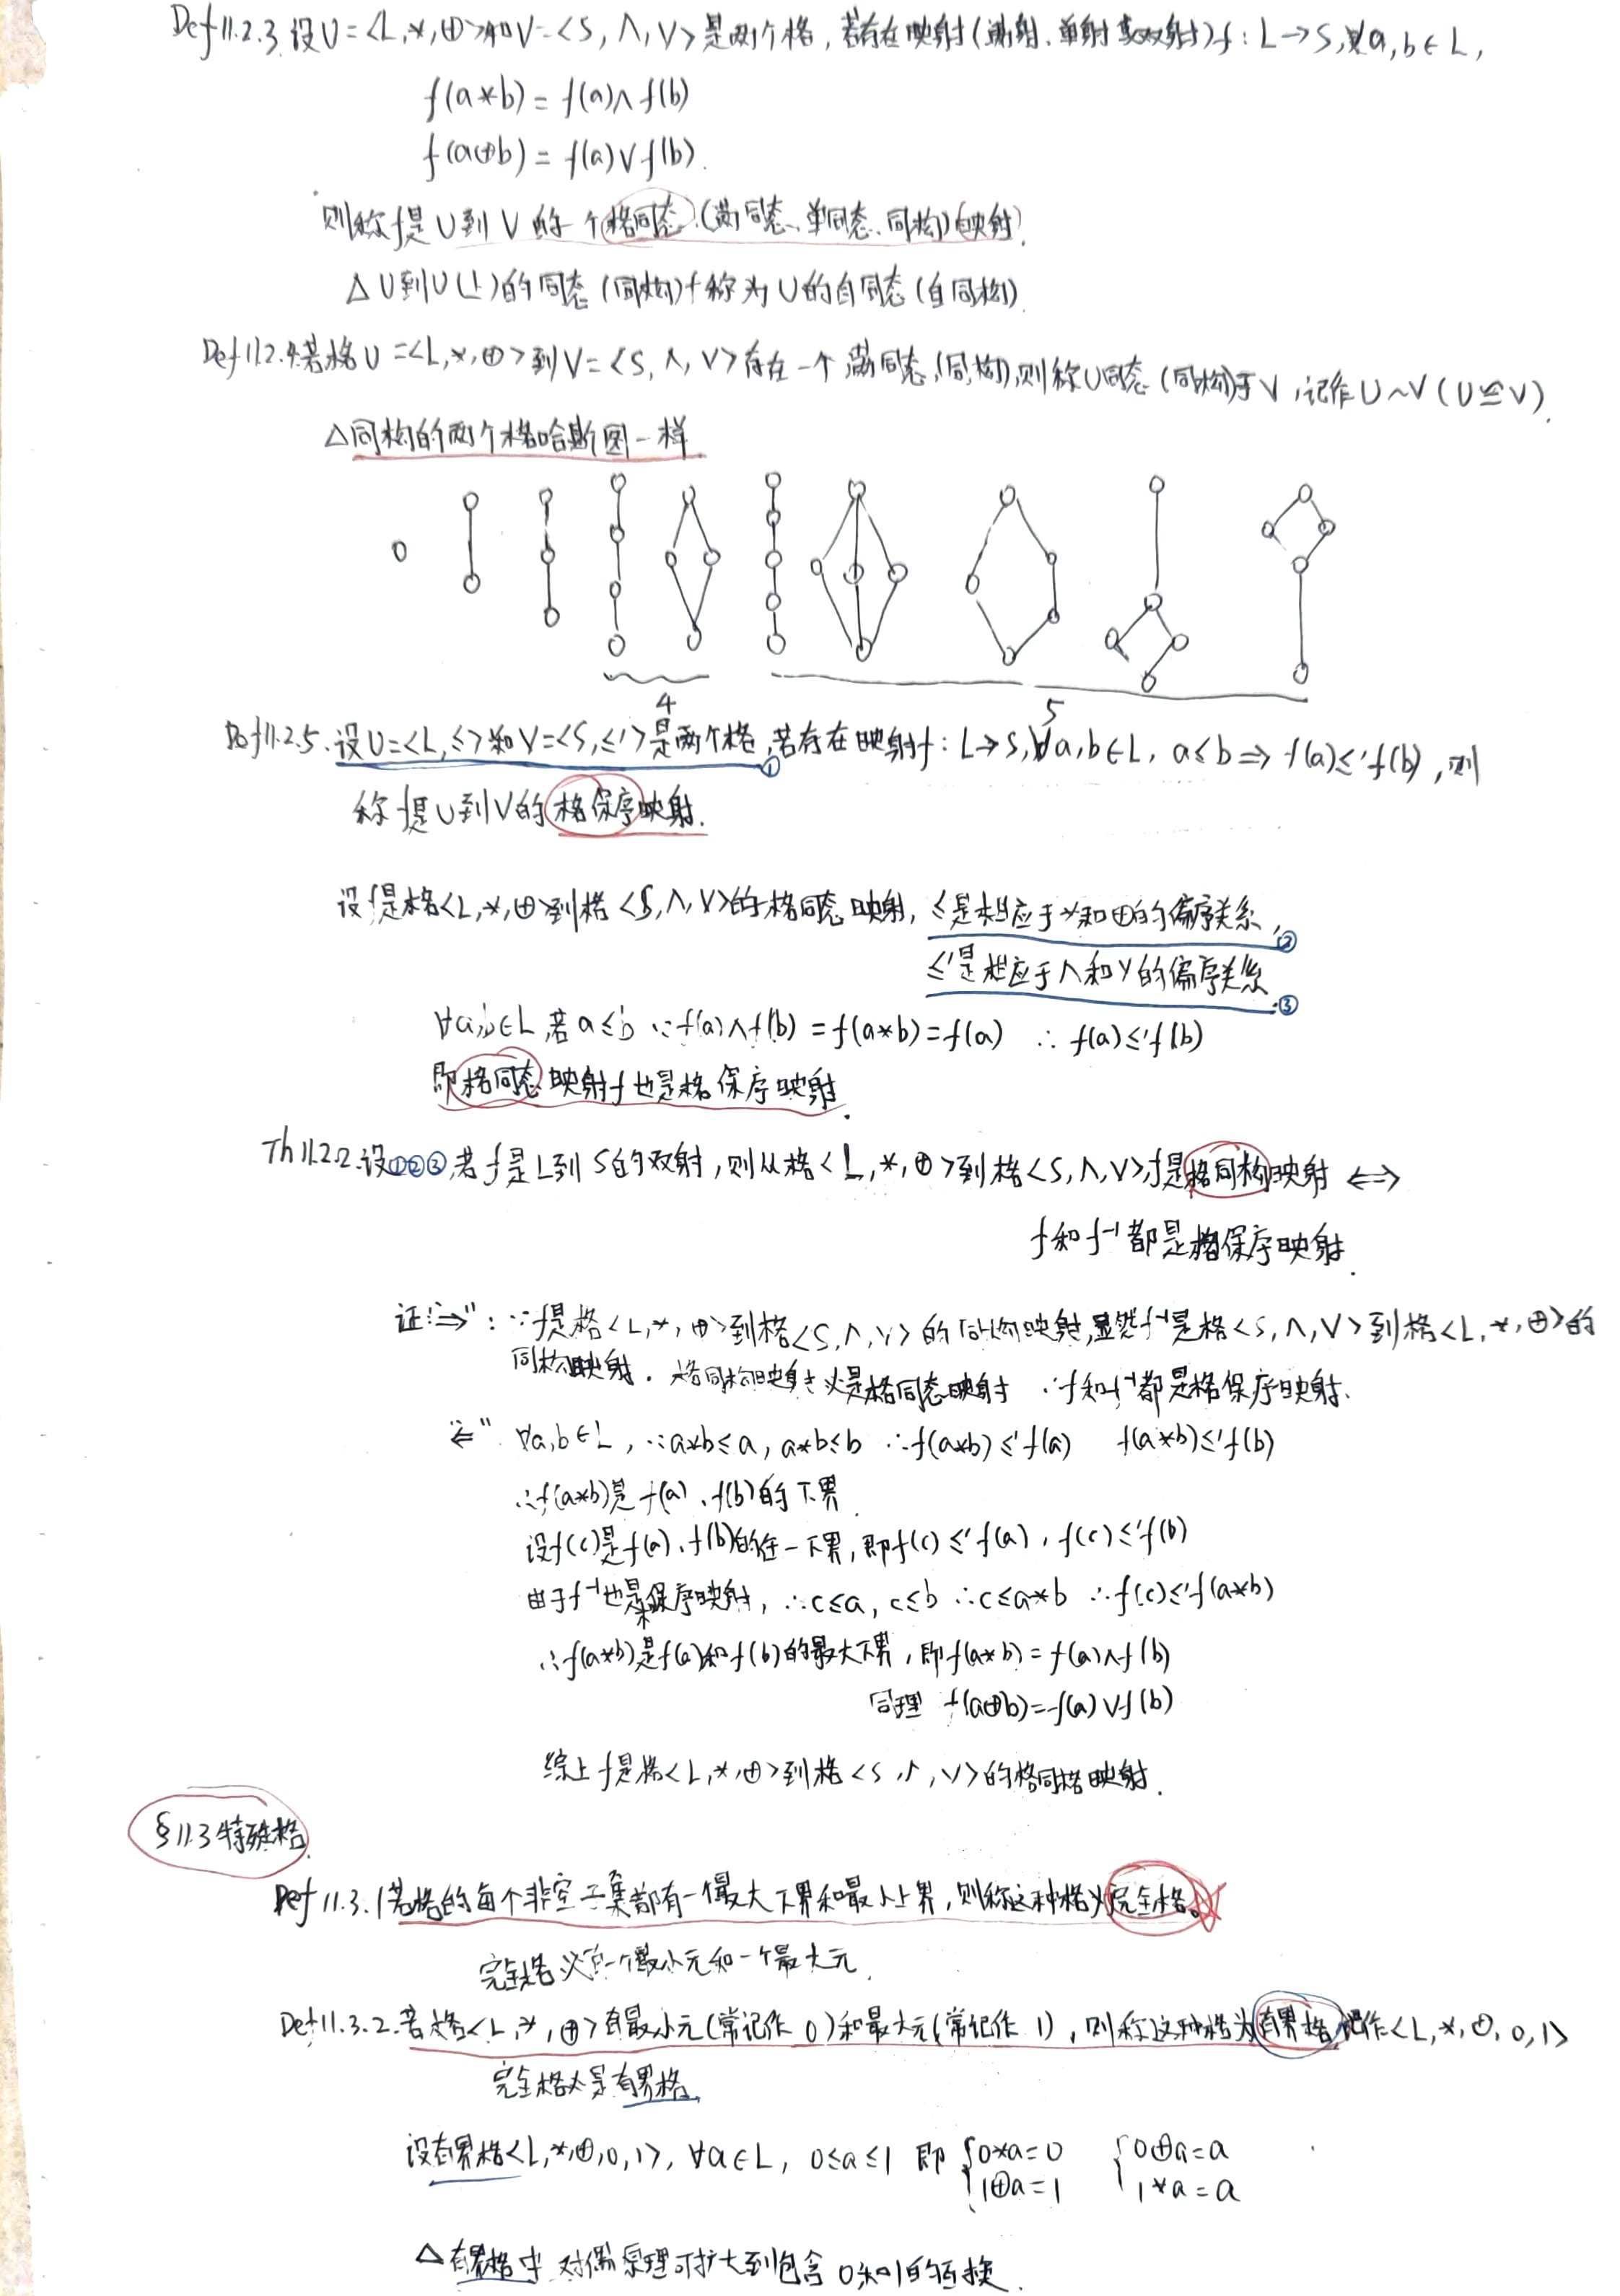 Def 11.2.3. 设U=<L,*,⊕>和V=<S,∧,∨>是两个格，若存在映射(满射、单射或双射) f: L→S, 对a,b∈L,
f(a*b) = f(a)∧f(b)
f(a⊕b) = f(a)∨f(b).
则称f是U到V的一个格同态(满同态、单同态、同构)映射.
△ U到U(上)的同态(同构)f称为U的自同态(自同构)
Def 11.2.4. 若格U=<L,*,⊕>到V=<S,∧,∨>存在一个满同态(同构),则称U同态(同构)于V,记作U~V(U≅V).
△同构的两个格哈斯图一样
4
5
Def 11.2.5. 设U=<L,≤>和V=<S,≤'>是两个格①,若存在映射f: L→S,∀a,b∈L, a≤b⇒f(a)≤'f(b),则
称f是U到V的格保序映射.
设f是格<L,*,⊕>到格<S,∧,∨>的格同态映射, ≤是相应于*和⊕的偏序关系,②
≤'是相应于∧和∨的偏序关系.③
∀a,b∈L,若a≤b ∵f(a)∧f(b)=f(a*b)=f(a) ∴f(a)≤'f(b)
即格同态映射f也是格保序映射.
Th 11.2.2. 设①②③,若f是L到S的双射,则从格<L,*,⊕>到格<S,∧,∨>,f是格同构映射 ⟺
f和f⁻¹都是格保序映射.
证:"⇒": ∵f是格<L,*,⊕>到格<S,∧,∨>的同构映射,显然f⁻¹是格<S,∧,∨>到格<L,*,⊕>的
同构映射. 格同构映射必是格同态映射 ∴f和f⁻¹都是格保序映射.
"⇐" ∀a,b∈L, ∵a*b≤a, a*b≤b ∴f(a*b)≤'f(a) f(a*b)≤'f(b)
∴f(a*b)是f(a)、f(b)的下界.
设f(c)是f(a)、f(b)的任一下界,即f(c)≤'f(a), f(c)≤'f(b)
由于f⁻¹也是格保序映射, ∴c≤a, c≤b ∴c≤a*b ∴f(c)≤'f(a*b)
∴f(a*b)是f(a)和f(b)的最大下界,即f(a*b)=f(a)∧f(b)
同理 f(a⊕b)=f(a)∨f(b)
综上f是格<L,*,⊕>到格<S,∧,∨>的格同格映射.
§11.3 特殊格.
Def 11.3.1 若格的每个非空子集都有一个最大下界和最小上界,则称这种格为完全格。
完全格必有一个最小元和一个最大元.
Def 11.3.2. 若格<L,*,⊕>有最小元(常记作0)和最大元(常记作1),则称这种格为有界格,记作<L,*,⊕,0,1>
完全格必是有界格.
设有界格<L,*,⊕,0,1>, ∀a∈L, 0≤a≤1 即 {0*a=0 {0⊕a=a
1⊕a=1 1*a=a
△ 有界格中 对偶原理可扩大到包含0和1的互换.